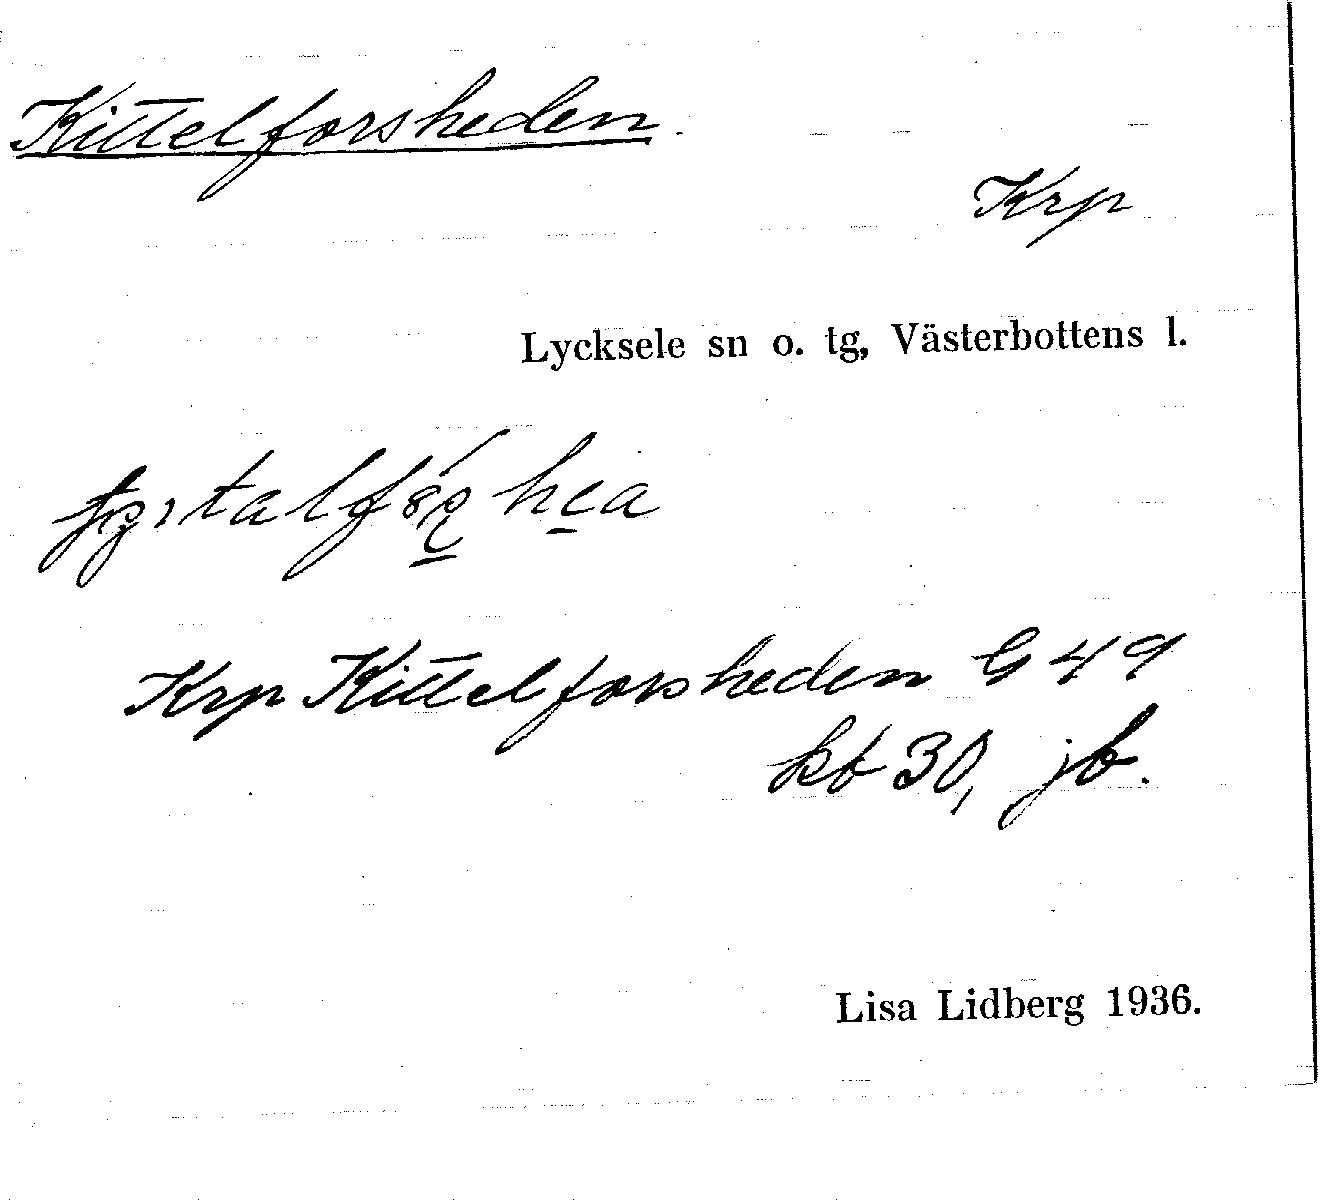 Kittelforsheden.
Krp
Lycksele sn o. tg, Västerbottens l.
Krp Kittelforsheden G 49
kb 30, jb.
Lisa Lidberg 1936.